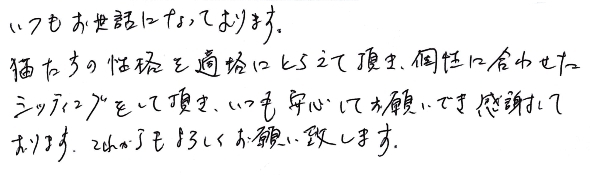 いつもお世話になっております。
猫たちの性格を適格にとらえて頂き、個性に合わせた
シッティングをして頂き、いつも安心してお願いでき感謝して
おります。これからもよろしくお願い致します。